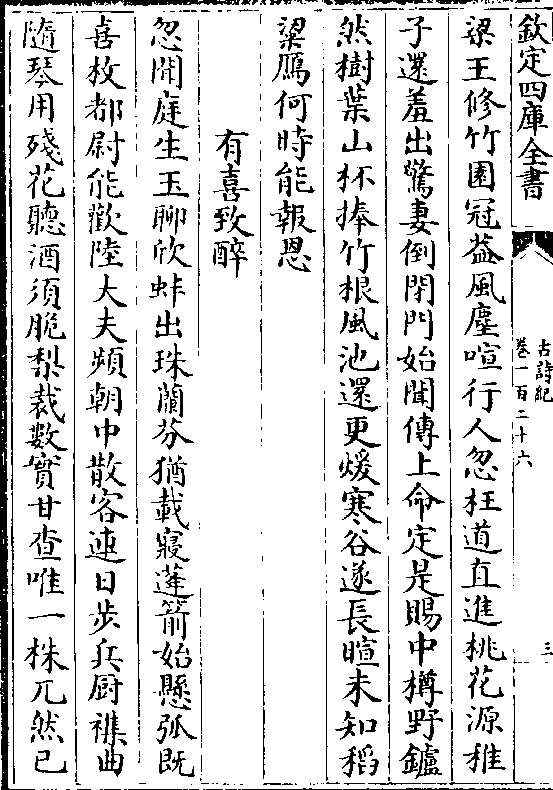 欽定四庫全書
古詩紀
卷一百二十六
三
梁王修竹園冠蓋風塵喧行人忽枉道直進桃花源稚
子還羞出驚妻倒閉門始聞傳上命定是賜中樽野鑪
然樹葉山杯捧竹根風池還更煖寒谷遂長暄未知稻
梁鴈何時能報恩
有喜致醉
忽聞庭生玉聊欣蚌出珠蘭芬猶載寢蓬箭始懸弧既
喜枚都尉能歡陸大夫頻朝中散客連日步兵厨襍曲
隨琴用殘花聽酒須脆梨裁數實甘查唯一株兀然已